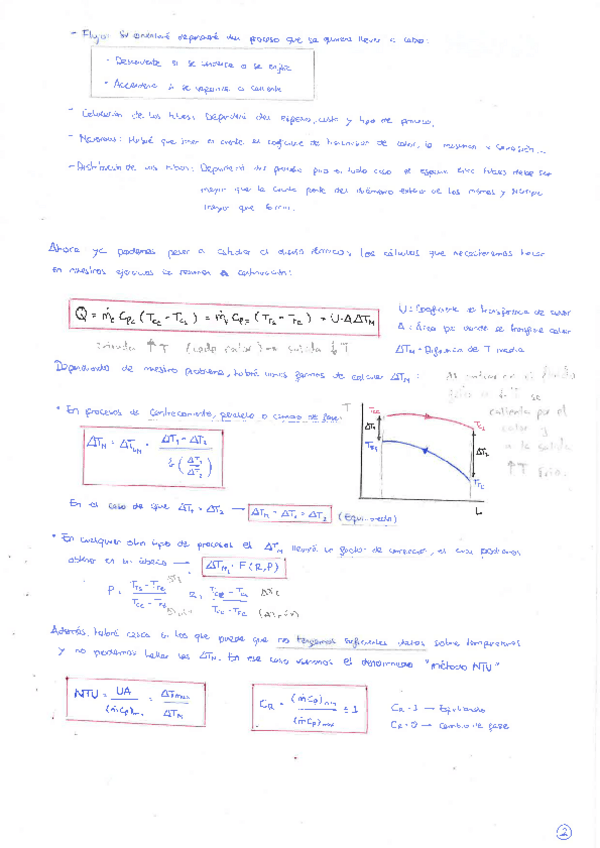 - Flujo: Su dependerá del proceso que se quiera llevar a cabo:
· Descendente si se condensa o se enfría
· Ascendente si se vaporiza o calienta
- Colocación de los tubos: Dependerá del espacio, coste y tipo de proceso.
- Materiales: Habrá que tener en cuenta el coeficiente de transmisión de calor, la resistencia a corrosión...
- Distribución de los tubos: Dependerá del proceso pero en todo caso el espacio entre tubos debe ser
mayor que la cuarta parte del diámetro exterior de los mismos y siempre
mayor que 6 mm.
Ahora ya podemos pasar a calcular el diseño térmico, los cálculos que necesitaremos hacer
en nuestros ejercicios se resumen a continuación:
Q = ṁc Cpc (Tce - Tcs) = ṁf Cpf (Tfs - Tfe) = U·A·ΔTM
U: Coeficiente de transferencia de calor
A: Área por donde se transfiere calor
ΔTM = Diferencia de T media
entrada ↑T (cede calor) → salida ↓T
Dependiendo de nuestro problema, habrá varias formas de calcular ΔTM:
el fluido
frío a ↓T se
calienta por el
calor y
a la salida
↑T fría.
• En procesos de contracorriente, paralelo o cambio de fase:
ΔTM = ΔTLM = (ΔT1 - ΔT2) / ln(ΔT1/ΔT2)
T
Tce
Tcs
ΔT1
ΔT2
Tfs
Tfe
L
En el caso de que ΔT1 = ΔT2 → ΔTM = ΔT1 = ΔT2 (Equilibrado)
• En cualquier otro tipo de procesos el ΔTM tendrá un factor de corrección, el cual podremos
obtener en un ábaco → ΔTM · F(R,P)
P = (Tfs - Tfe) / (Tce - Tfe) R = (Tce - Tcs) / (Tfs - Tfe)
Además, habrá casos en los que puede que no tengamos suficientes datos sobre temperaturas
y no podamos hallar las ΔTM. En ese caso usaremos el denominado "método NTU"
NTU = UA / (ṁCp)min = ΔTmax / ΔTM
CR = (ṁCp)min / (ṁCp)max ≤ 1
CR = 1 → Equilibrado
CR = 0 → Cambio de fase
2